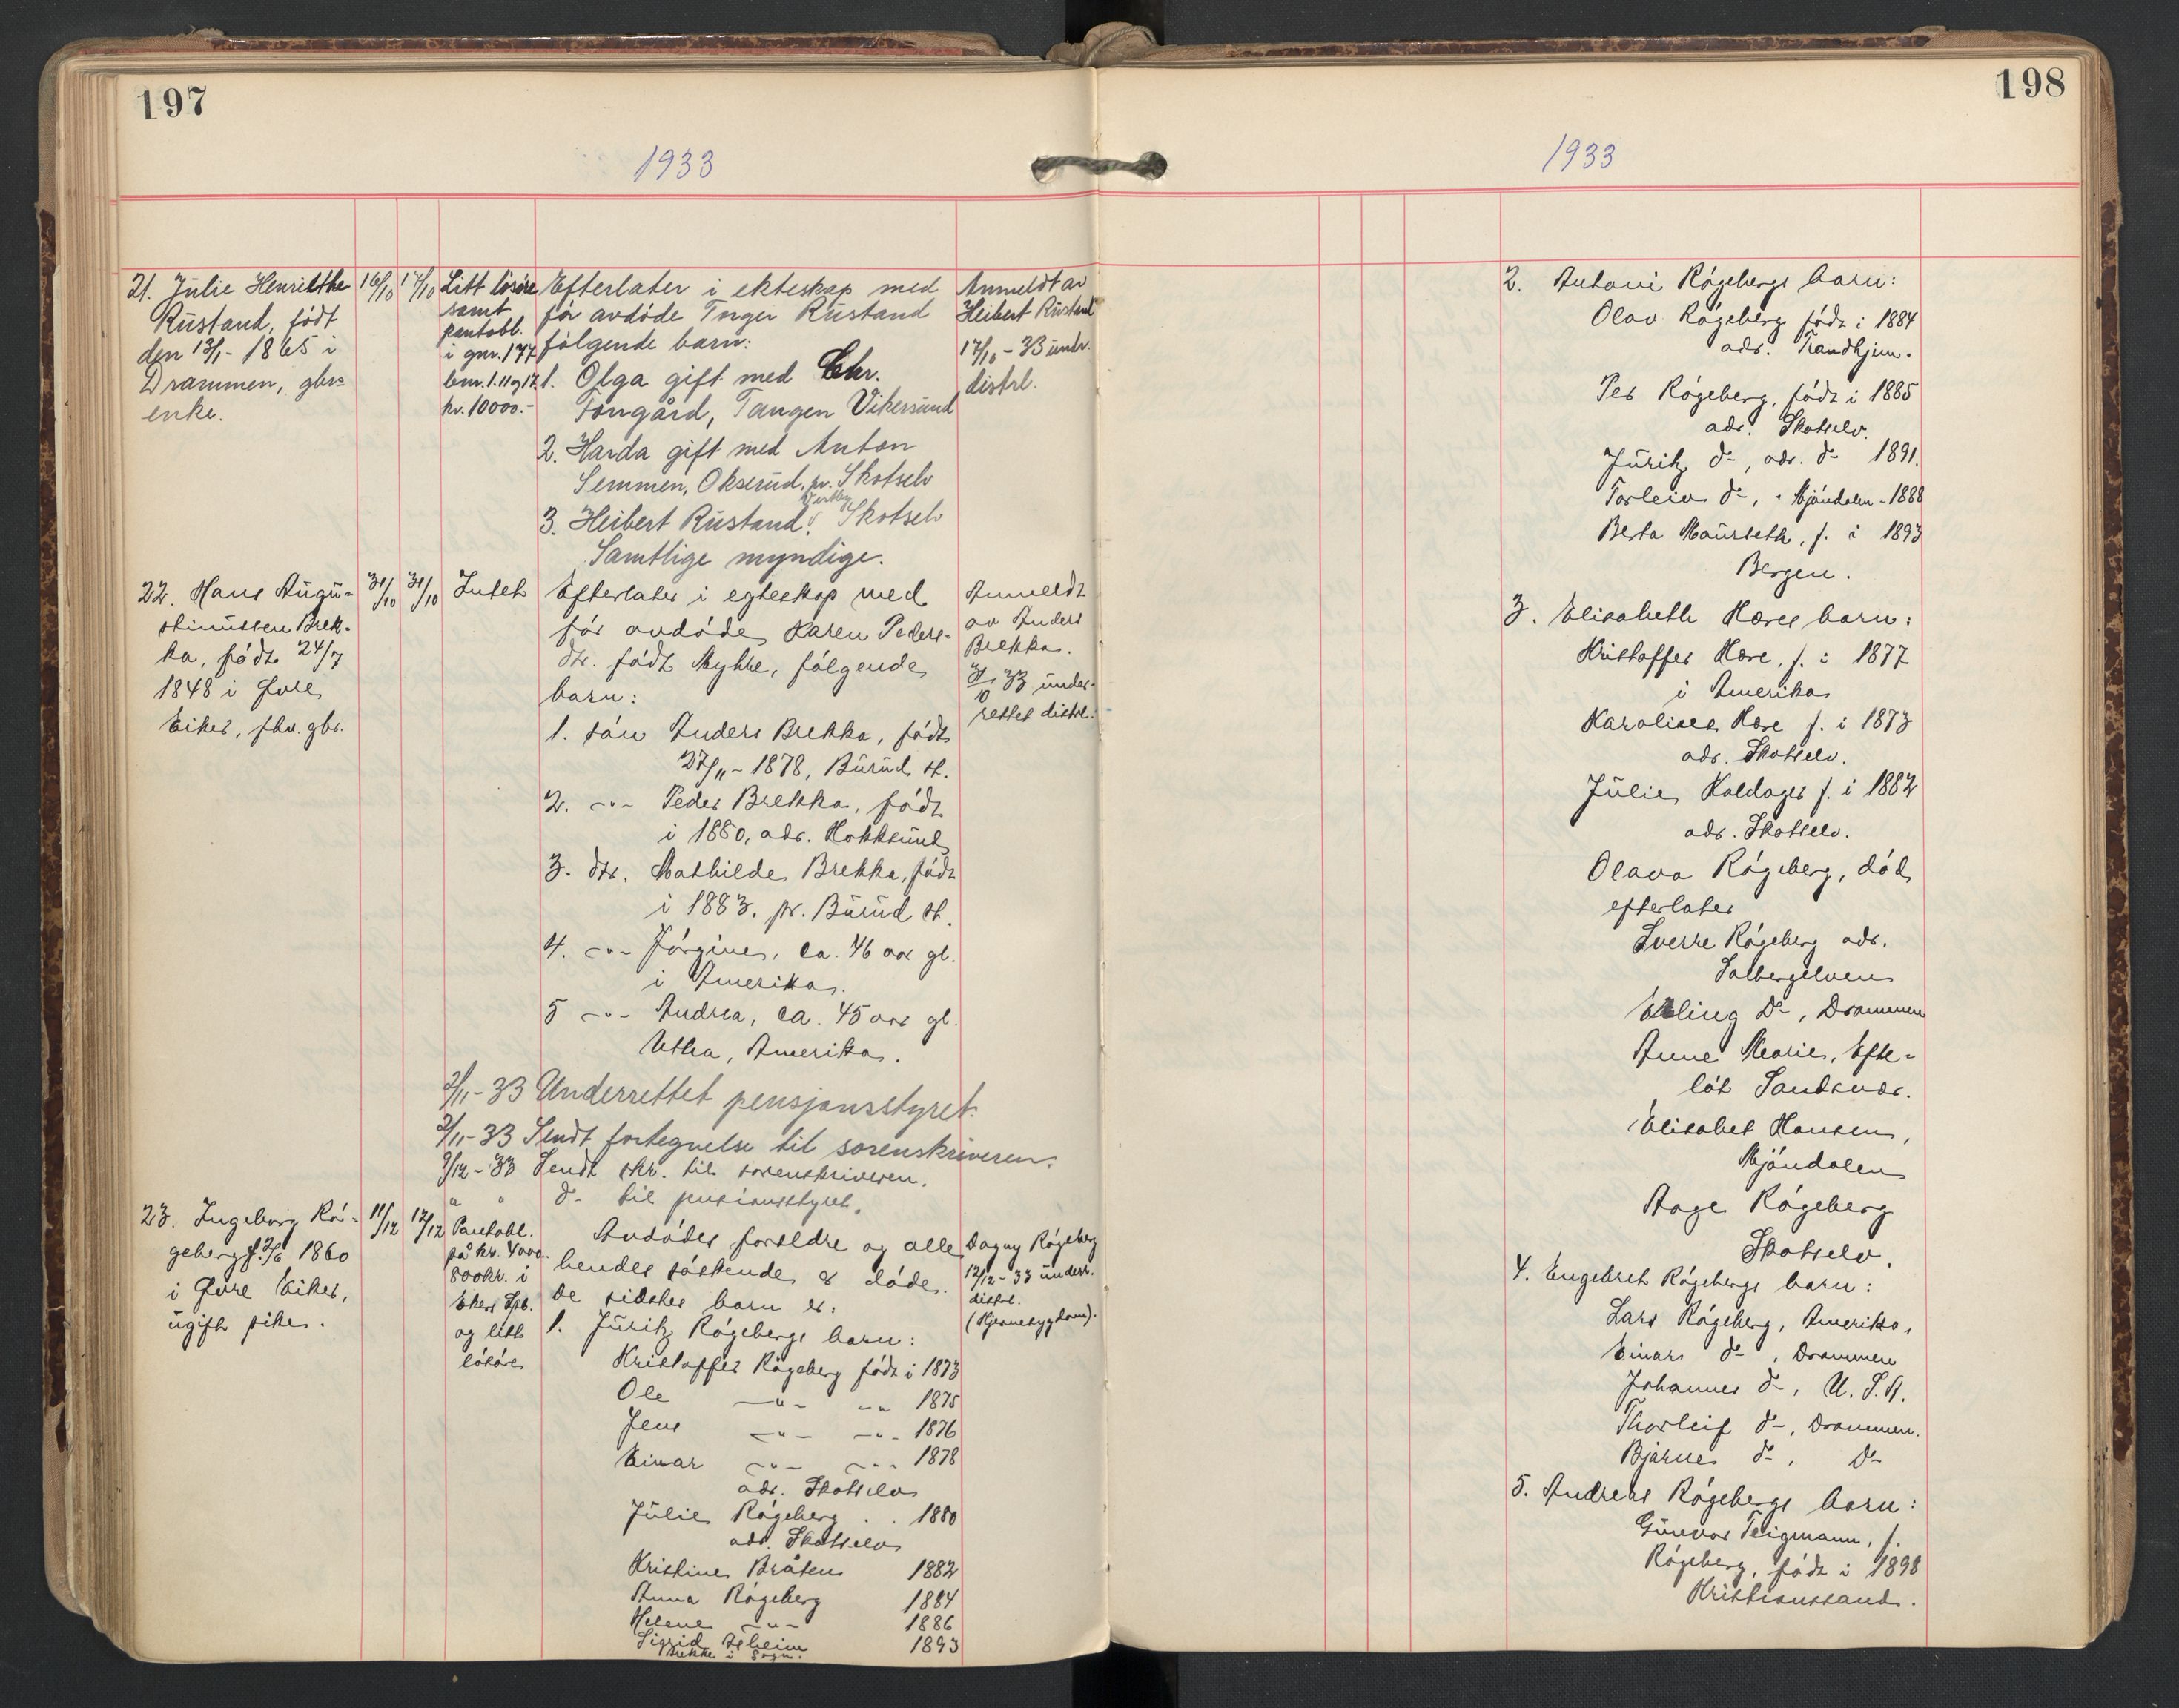 197
1933
21. Julie Henriette
Rustand, født
den 13/1 - 1865 i
Drammen, gbr.
enke.
16/10
17/10
Litt løsøre
samt
pantobl.
i gnr. 177
bnr. 1. 11 og 17
kr. 10000.-
Efterlater i ekteskap med
før avdøde Inger Rustand
følgende barn:
1. Olga gift med Chr.
Tangen Vikersund
2. Harda gift med Anton
Semmen, Okserud, pr. Skotselv
3. Heibert Rustand, Skotselv
Samtlige myndige.
Anmeldt av
Heibert Rustand
17/10 - 33 undr.
distrl.
22. Hans Augu-
stinussen Brek-
ka, født 24/7
1848 i Øvre
Eiker, fhv. gbr.
31/10
31/10
Intet
Efterlater i egteskap med
før avdøde Karen Peders-
dtr. født Myhre, følgende
barn:
1. søn Anders Brekka, født
27/11 - 1878, Burud st.
2. -"- Peder Brekka, født
i 1880, adr. Hokksund
3. dtr. Mathilde Brekka, født
i 1883. pr. Burud st.
4. -"- Jørgine, ca. 46 aar gl.
i Amerika.
5 -"- Andrea, ca. 45 aar gl.
Utha, Amerika.
Anmeldt
av Anders
Brekka.
31/10 33 under-
rettet distrl.
2/11 - 33 Underrettet pensjonsstyret.
2/11 - 33 Sendt fortegnelse til sorenskriveren.
9/12 - 33 Sendt skr. til sorenskriveren.
" " do til pensionsstyret.
23. Ingeborg Rø-
geberg f. 2/6 1860
i Øvre Eiker,
ugift pike.
11/12
12/12
Pantobl.
på kr. 4000.
800 kr. i
Ekers Spb.
og litt
løsøre
Avdødes foreldre og alle
hendes søskende er døde.
De sidstes barn er:
1. Juritz Røgebergs barn:
Kristoffer Røgeberg født i 1873
Ole -"- -"- 1875
Jens -"- -"- 1876
Einar -"- -"- 1878
adr. Skotselv
Julie Røgeberg " " 1880
adr. Skotselv
Kristine Bråten 1882
Anna Røgeberg 1884
Helene -"- 1886
Sigrid Asheim 1893
Brekke i Sogn.
Dagny Røgeberg
12/12 - 33 underr.
distrl.
(Hjernesygdom).
198
1933
2. Antoni Røgebergs barn:
Olav Røgeberg født i 1884
adr. Trandhjem.
Per Røgeberg, født i 1885
adr. Skotselv.
Juritz do, adr. do 1891.
Torleiv do, " Mjøndalen - 1888
Berta Maurseth, f. i 1893
Bergen.
3. Elisabeth Hæres barn:
Kristoffer Hære, f. i 1877
i Amerika
Karoline Hære f. i 1873
adr. Skotselv.
Julie Kaldager f. i 1882
adr. Skotselv.
Olava Røgeberg, død,
efterlater
Sverre Røgeberg adr.
Solbergelven
Erling Do, Drammen
Anne Marie, Efte-
løt Sandsvær.
Elisabet Hansen,
Mjøndalen
Aage Røgeberg
Skotselv.
4. Engebret Røgebergs barn:
Lars Røgeberg, Amerika,
Einar do, Drammen
Johannes do, U. S. A.
Thorleif do, Drammen.
Bjarne do, Do
5. Andreas Røgebergs barn:
Gunvor Teigmann, f.
Røgeberg, født i 1898
Kristianssand.